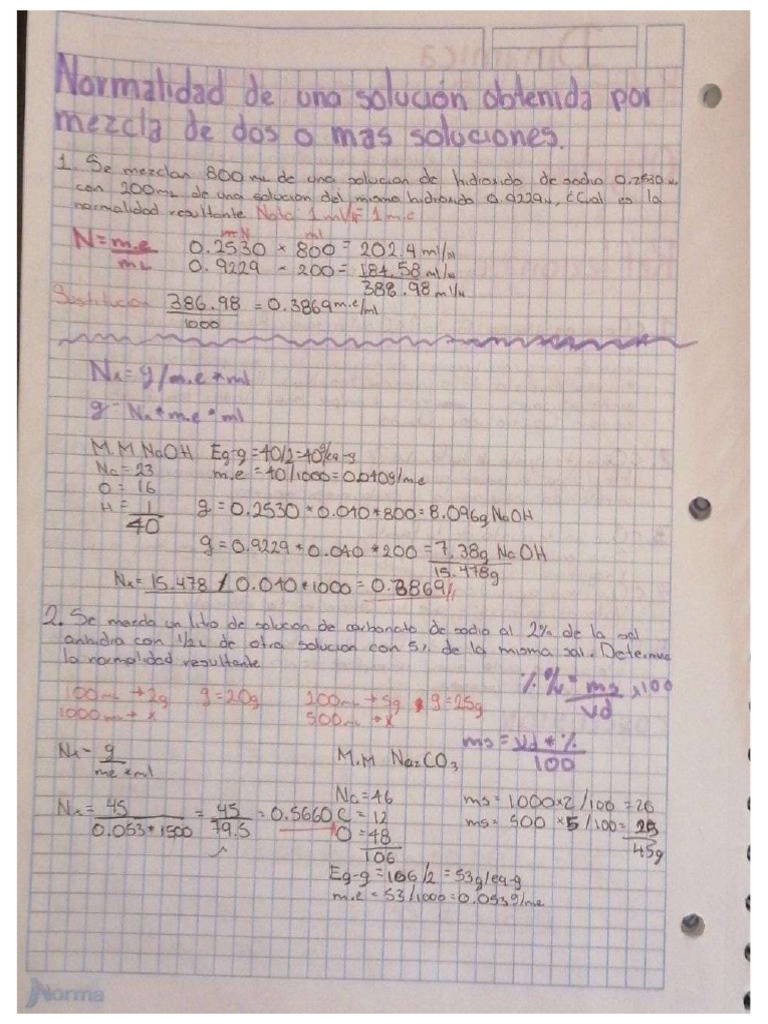 Normalidad de una solución obtenida por
mezcla de dos o mas soluciones.
1. Se mezclan 800 mL de una solucion de hidroxido de sodio 0.2530 N,
con 200mL de una solucion del mismo hidroxido 0.9229N, ¿Cual es la
normalidad resultante Nota: 1 ml/F = 1 m.e
N = m.e
mL
m N ml
0.2530 * 800 = 202.4 ml/N
0.9229 - 200 = 184.58 ml/N
388.98 ml/N
Sustitucion 386.98 = 0.3869 m.e/ml
1000
Nx = g/m.e * ml
g = Nx * m.e * ml
M.M NaOH Eg-g = 40/2 = 40g/eq-g
Na = 23 m.e = 40/1000 = 0.040g/m.e
O = 16
H = 1 g = 0.2530 * 0.040 * 800 = 8.096g NaOH
40
g = 0.9229 * 0.040 * 200 = 7.38g NaOH
15.478g
Nx = 15.478 / 0.040 * 1000 = 0.3869
2. Se mezcla un litro de solucion de carbonato de sodio al 2% de la sal
anhidra con 1/2 L de otra solucion con 5% de la misma sal. Determine
la normalidad resultante
100mL → 2g g = 20g 200mL → 5g g = 25g
1000mL → x 500mL → x
% % = ms x 100
vd
ms = vd * %
100
Nx = g
me * ml
M.M Na2CO3
Nx = 45 = 45 = 0.5660
0.053 * 1500 79.5
Na = 46
C = 12
O = 48
106
ms = 1000 x 2 / 100 = 20
ms = 500 x 5 / 100 = 25
45g
Eg-g = 106/2 = 53g/eq-g
m.e = 53/1000 = 0.053g/me
Norma